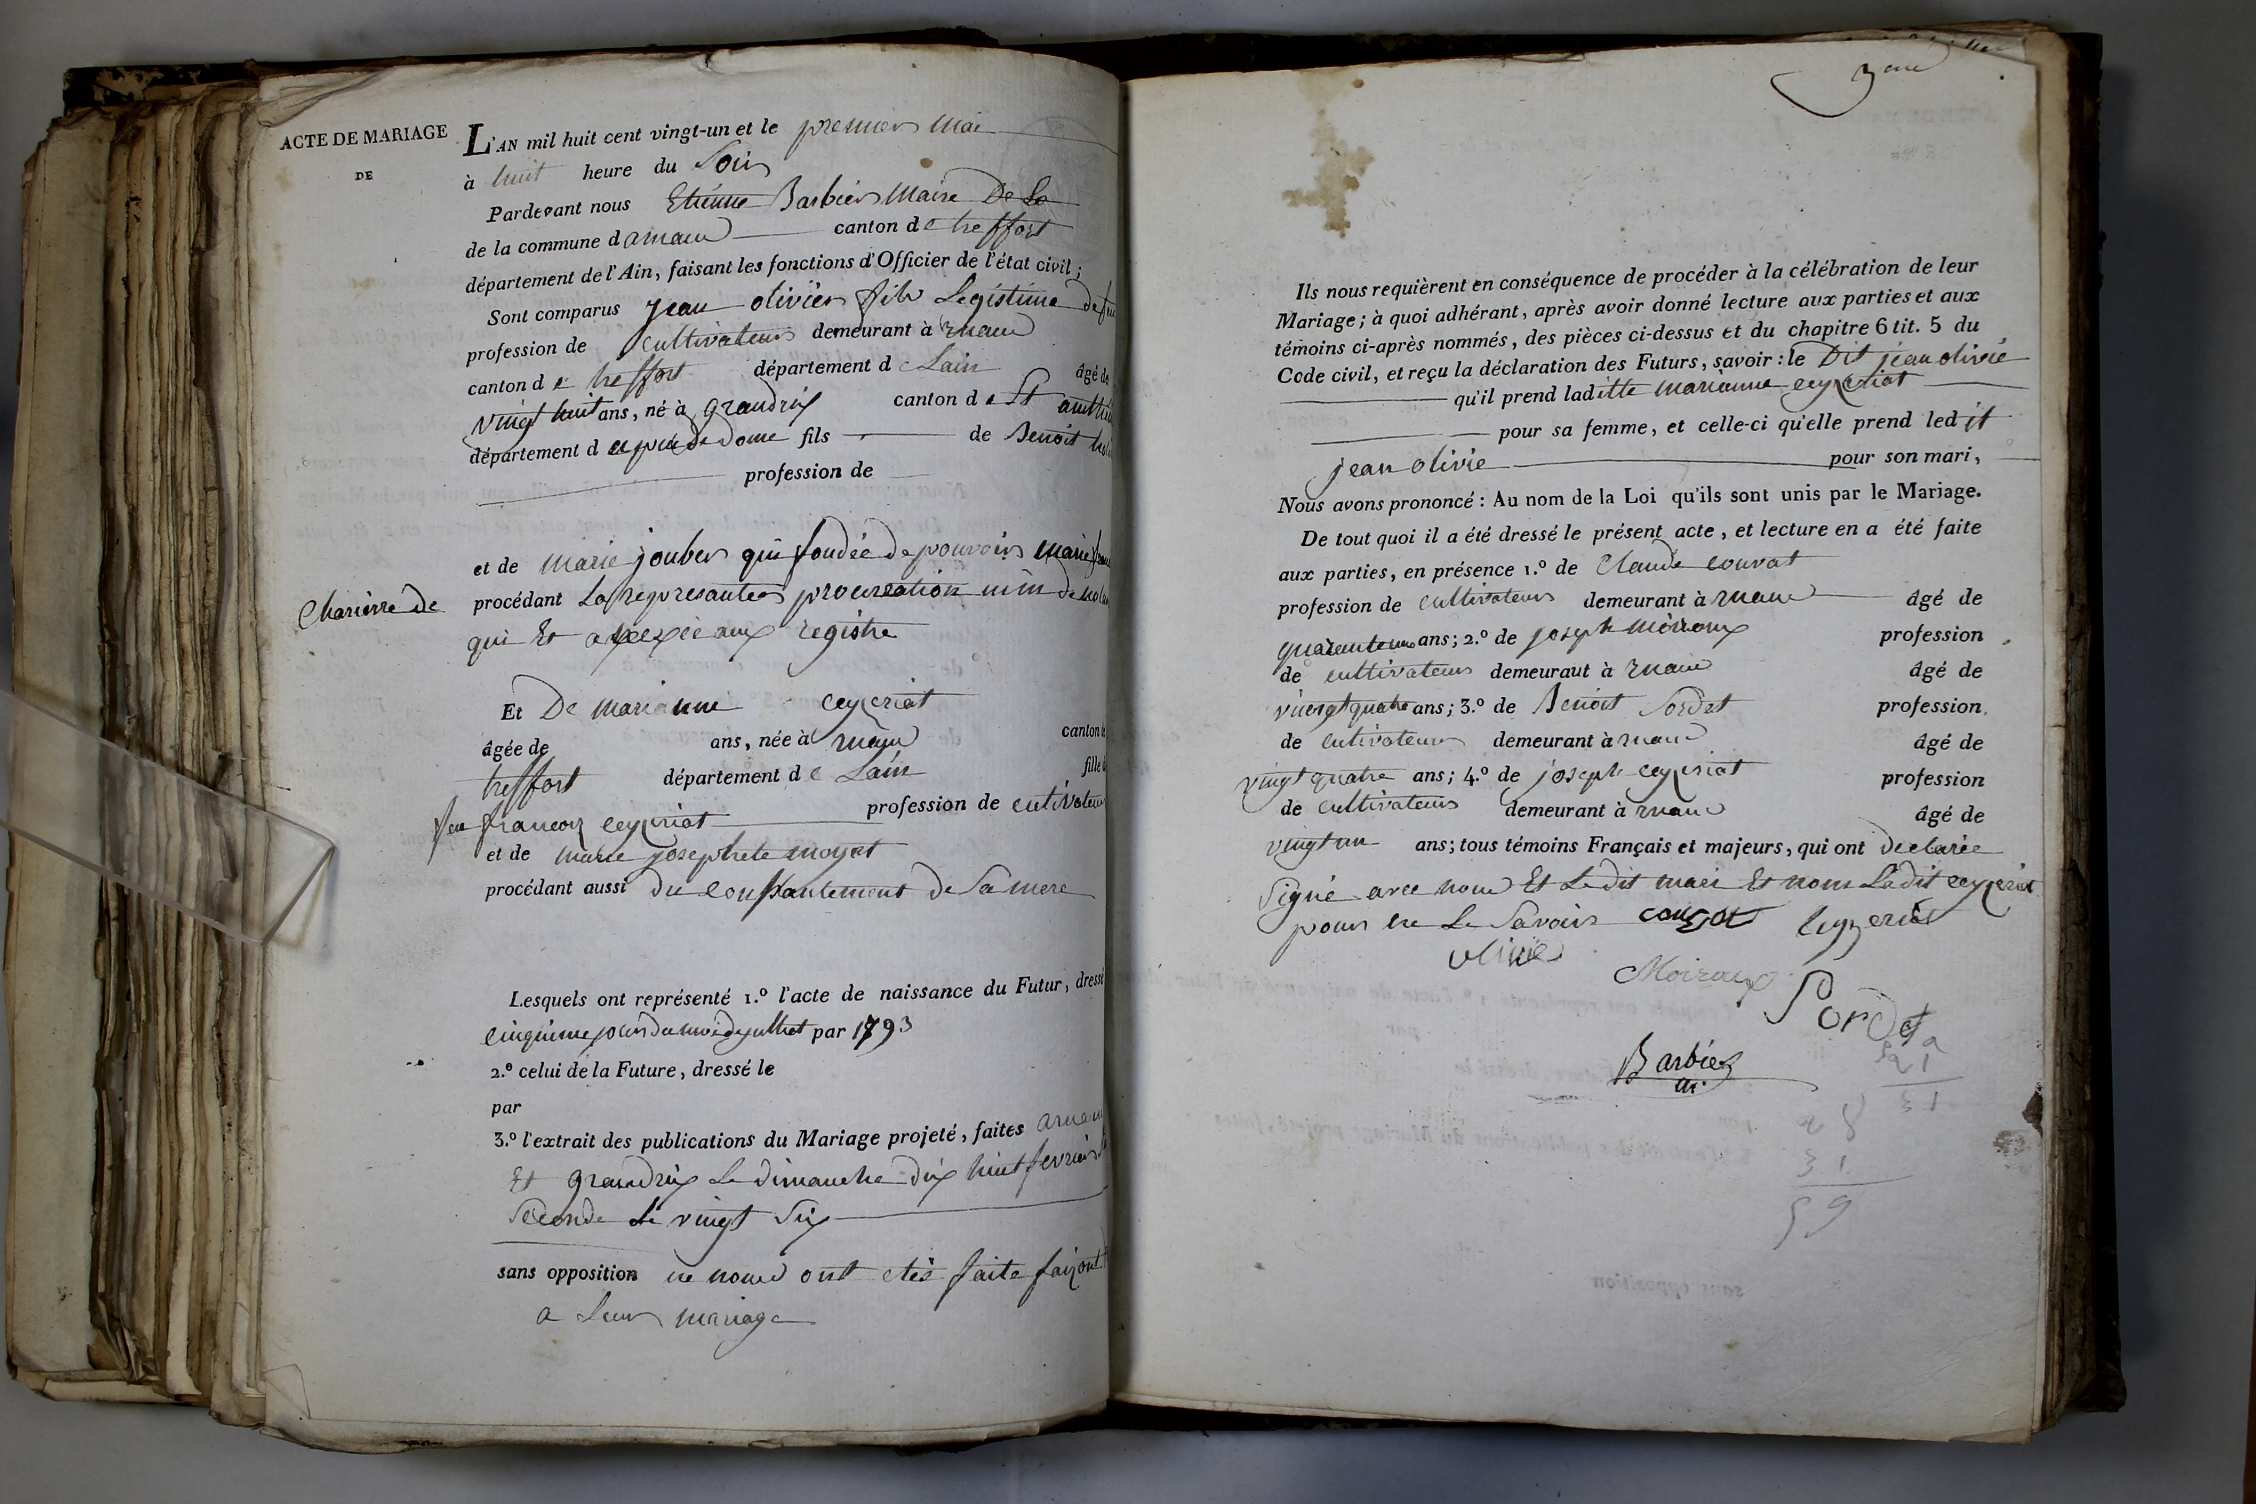 ACTE DE MARIAGE
DE
L'AN mil huit cent vingt-un et le premier mai
à huit heure du Soir
Pardevant nous Etienne Barbier Maire De La
de la commune d arnan canton de treffort
département de l'Ain, faisant les fonctions d'Officier de l'état civil;
Sont comparus jean olivier fils Legistime de feu
profession de cultivateur demeurant à rnan
canton de treffort département de Lain âgé de
vingt huit ans, né à grandrix canton de St
département d fils de Benoit
profession de
et de marie jouber qui fondée de pouvoir marie
Charierre de
procédant La represantee procuration
qui Et aux registre
Et De marianne ceyzeriat
âgée de ans, née à rnan canton de
treffort département de Lain fille
feu francoix ceyzeriat profession de cutivateur
et de marie josephete moyret
procédant aussi du consantement de Sa mere
Lesquels ont représenté 1.º l'acte de naissance du Futur, dressé
par 1793
2.º celui de la Future, dressé le
par
3.º l'extrait des publications du Mariage projeté, faites arnan
Et grandrix Le dimanche dix huit fevrier
Seconde Le vingt Six
sans opposition ne nous ont etés faite
a Leur mariage
3eme
Ils nous requièrent en conséquence de procéder à la célébration de leur
Mariage; à quoi adhérant, après avoir donné lecture aux parties et aux
témoins ci-après nommés, des pièces ci-dessus et du chapitre 6 tit. 5 du
Code civil, et reçu la déclaration des Futurs, savoir: le Dit jean olivié
qu'il prend laditte marianne ceyzeriat
pour sa femme, et celle-ci qu'elle prend ledit
jean olivie pour son mari,
Nous avons prononcé: Au nom de la Loi qu'ils sont unis par le Mariage.
De tout quoi il a été dressé le présent acte, et lecture en a été faite
aux parties, en présence 1.º de Claude convat
profession de cultivateur demeurant à rnan âgé de
ans; 2.º de joseph moiroux profession
de cultivateur demeuraut à rnan âgé de
vuengt quatre ans; 3.º de Benoit Sordet profession
de cutivateur demeurant à rnan âgé de
vingt quatre ans; 4.º de joseph ceyzeriat profession
de cultivateur demeurant à rnan âgé de
vingt un ans; tous témoins Français et majeurs, qui ont declarée
Signé avec nous Et Ledit mari Et nom Ladit ceyzeriat
pour ne Le Savoir convat Ceyzeriat
olivié
Moiroux
Sordet
Barbier
m.